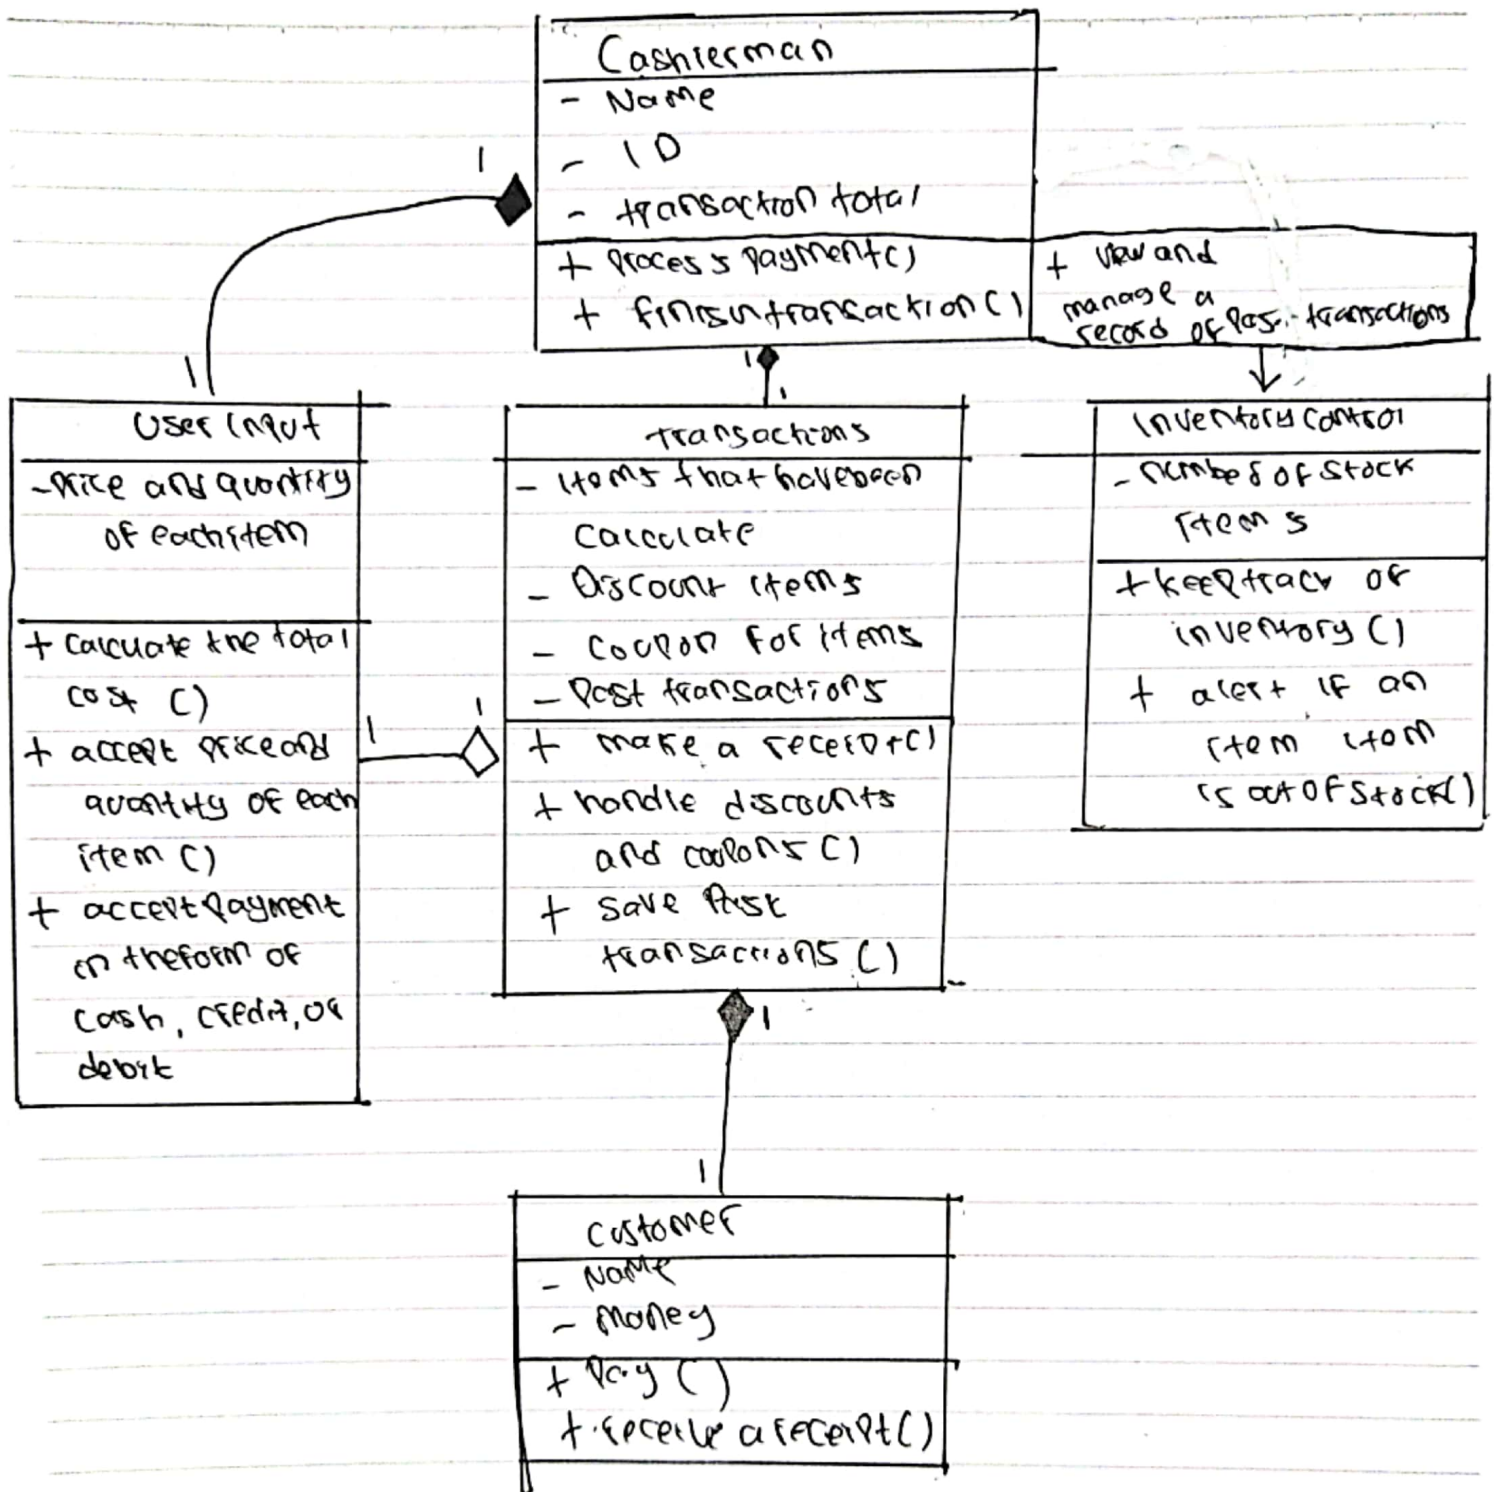 Cashierman
- Name
- ID
- transaction total
+ process payment()
+ finish transaction()
+ view and
manage a
record of Past transactions
1
1
1
1
User Input
- Price and quantity
of each item
+ Calcuate the total
cost ()
+ accept price and
quantity of each
item ()
+ accept Payment
in the form of
cash, credit, or
debit
1
1
Transactions
- Items that have been
Calculate
- Discount items
- Coupon for items
- Past transactions
+ make a receipt()
+ handle discounts
and coupons ()
+ save Past
transactions ()
Inventory Control
- number of stock
items
+ keep track of
inventory ()
+ alert if an
item item
is out of stock()
1
1
Customer
- Name
- Money
+ Pay ()
+ receive a receipt()